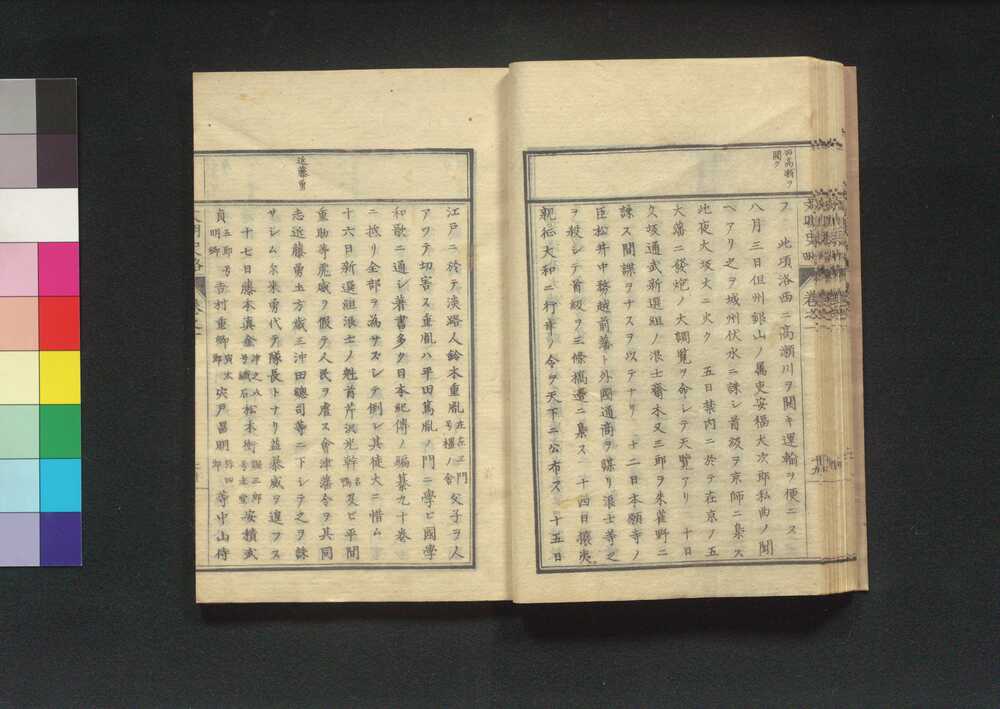 ヲ高瀬ヲ
開ク
フ　此項洛西ニ高瀬川ヲ開キ運輸ヲ便ニス
八月三日但州銀山ノ属吏安福大次郎私曲ノ聞
ヘアリ之ヲ城州伏水ニ誅シ首級ヲ京師ニ梟ス
此夜大坂大ニ火ク　五日禁内ニ於テ在京ノ五
大藩ニ發炮ノ大調覧ヲ命シテ天覧アリ　十日
久坂通武新選組ノ浪士齋木又三郎ヲ朱雀野ニ
誅ス間諜ヲナスヲ以テナリ　十二日本願寺ノ
臣松井中務越前藩ト外國通商ヲ謀リ浪士等之
ヲ殺シテ首級ヲ三條橋邊ニ梟ス　十四日攘夷
親征大和ニ行幸ノ令ヲ天下ニ公布ス　十五日
近藤勇
江戸ニ於テ淡路人鈴木重胤左右エ門号橿ノ舎父子ヲ人
アツテ切害ス重胤ハ平田篤胤ノ門ニ學ヒ國學
和歌ニ通シ著書多ク日本紀傳ノ編纂九十巻
ニ越リ全部ヲ為サズシテ倒レ其徒大ニ惜ム
十六日新選組浪士ノ魁首芹沢光幹名鴨及ヒ平間
重助等虎威ヲ假テ人民ヲ虐ス會津藩令ヲ其同
志近藤勇土方歳三沖田總司等ニ下シテ之ヲ誅
サシム尓来勇代テ隊長トナリ益暴威ヲ逞フス
十七日藤本真金津之助号鐵石松本衡謙三郎号奎堂安積武
貞五郎明卿吉村重卿寅太郎宍戸昌明弥四郎等中山侍